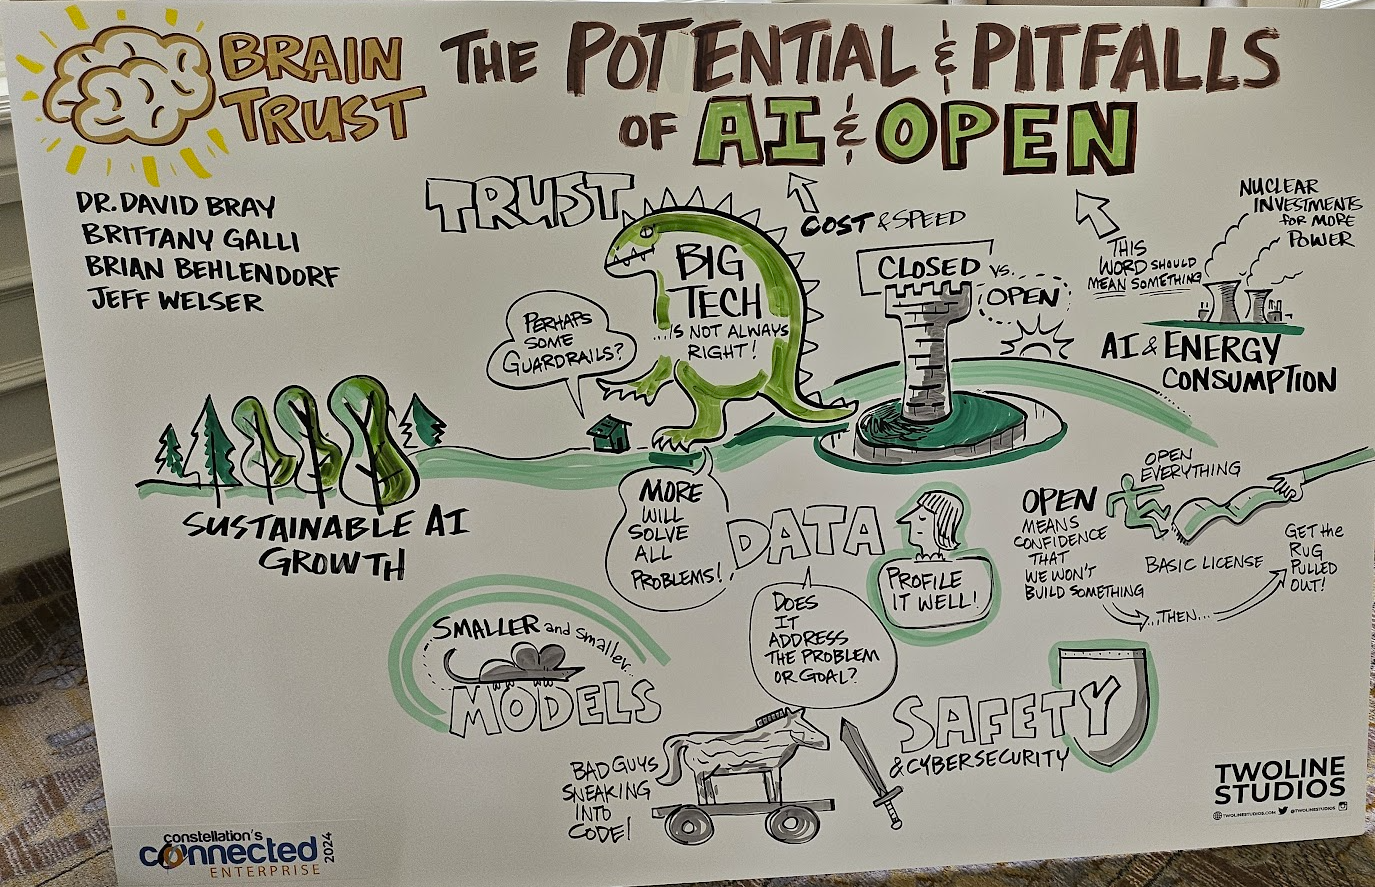 BRAIN
TRUST
THE POTENTIAL & PITFALLS
OF AI & OPEN
DR. DAVID BRAY
BRITTANY GALLI
BRIAN BEHLENDORF
JEFF WELSER
TRUST
BIG
TECH
...IS NOT ALWAYS
RIGHT!
PERHAPS
SOME
GUARDRAILS?
COST & SPEED
CLOSED
VS.
OPEN
THIS
WORD SHOULD
MEAN SOMETHING
NUCLEAR
INVESTMENTS
for MORE
POWER
AI & ENERGY
CONSUMPTION
SUSTAINABLE AI
GROWTH
MORE
WILL
SOLVE
ALL
PROBLEMS!
DATA
PROFILE
IT WELL!
DOES
IT
ADDRESS
THE PROBLEM
OR GOAL?
OPEN
MEANS
CONFIDENCE
THAT
WE WON'T
BUILD SOMETHING
OPEN
EVERYTHING
BASIC LICENSE
...THEN...
GET the
RUG
PULLED
OUT!
SMALLER and smaller...
MODELS
BAD GUYS
SNEAKING
INTO
CODE!
SAFETY
& CYBERSECURITY
constellation's
connected
ENTERPRISE
2024
TWOLINE
STUDIOS
TWOLINESTUDIOS.COM @TWOLINESTUDIOS